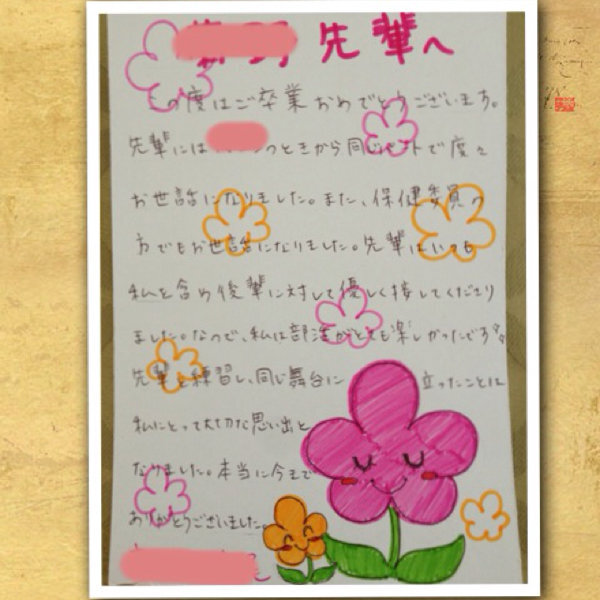 先輩へ
この度はご卒業おめでとうございます。
先輩には のときから同じパートで度々
お世話になりました。また、保健委員の
方でもお世話になりました。先輩はいつも
私を含め後輩に対して優しく接してくださり
ました。なので、私は部活がとても楽しかったです
先輩と練習し、同じ舞台に 立ったことは
私にとって大切な思い出と
なりました。本当に今まで
ありがとうございました。